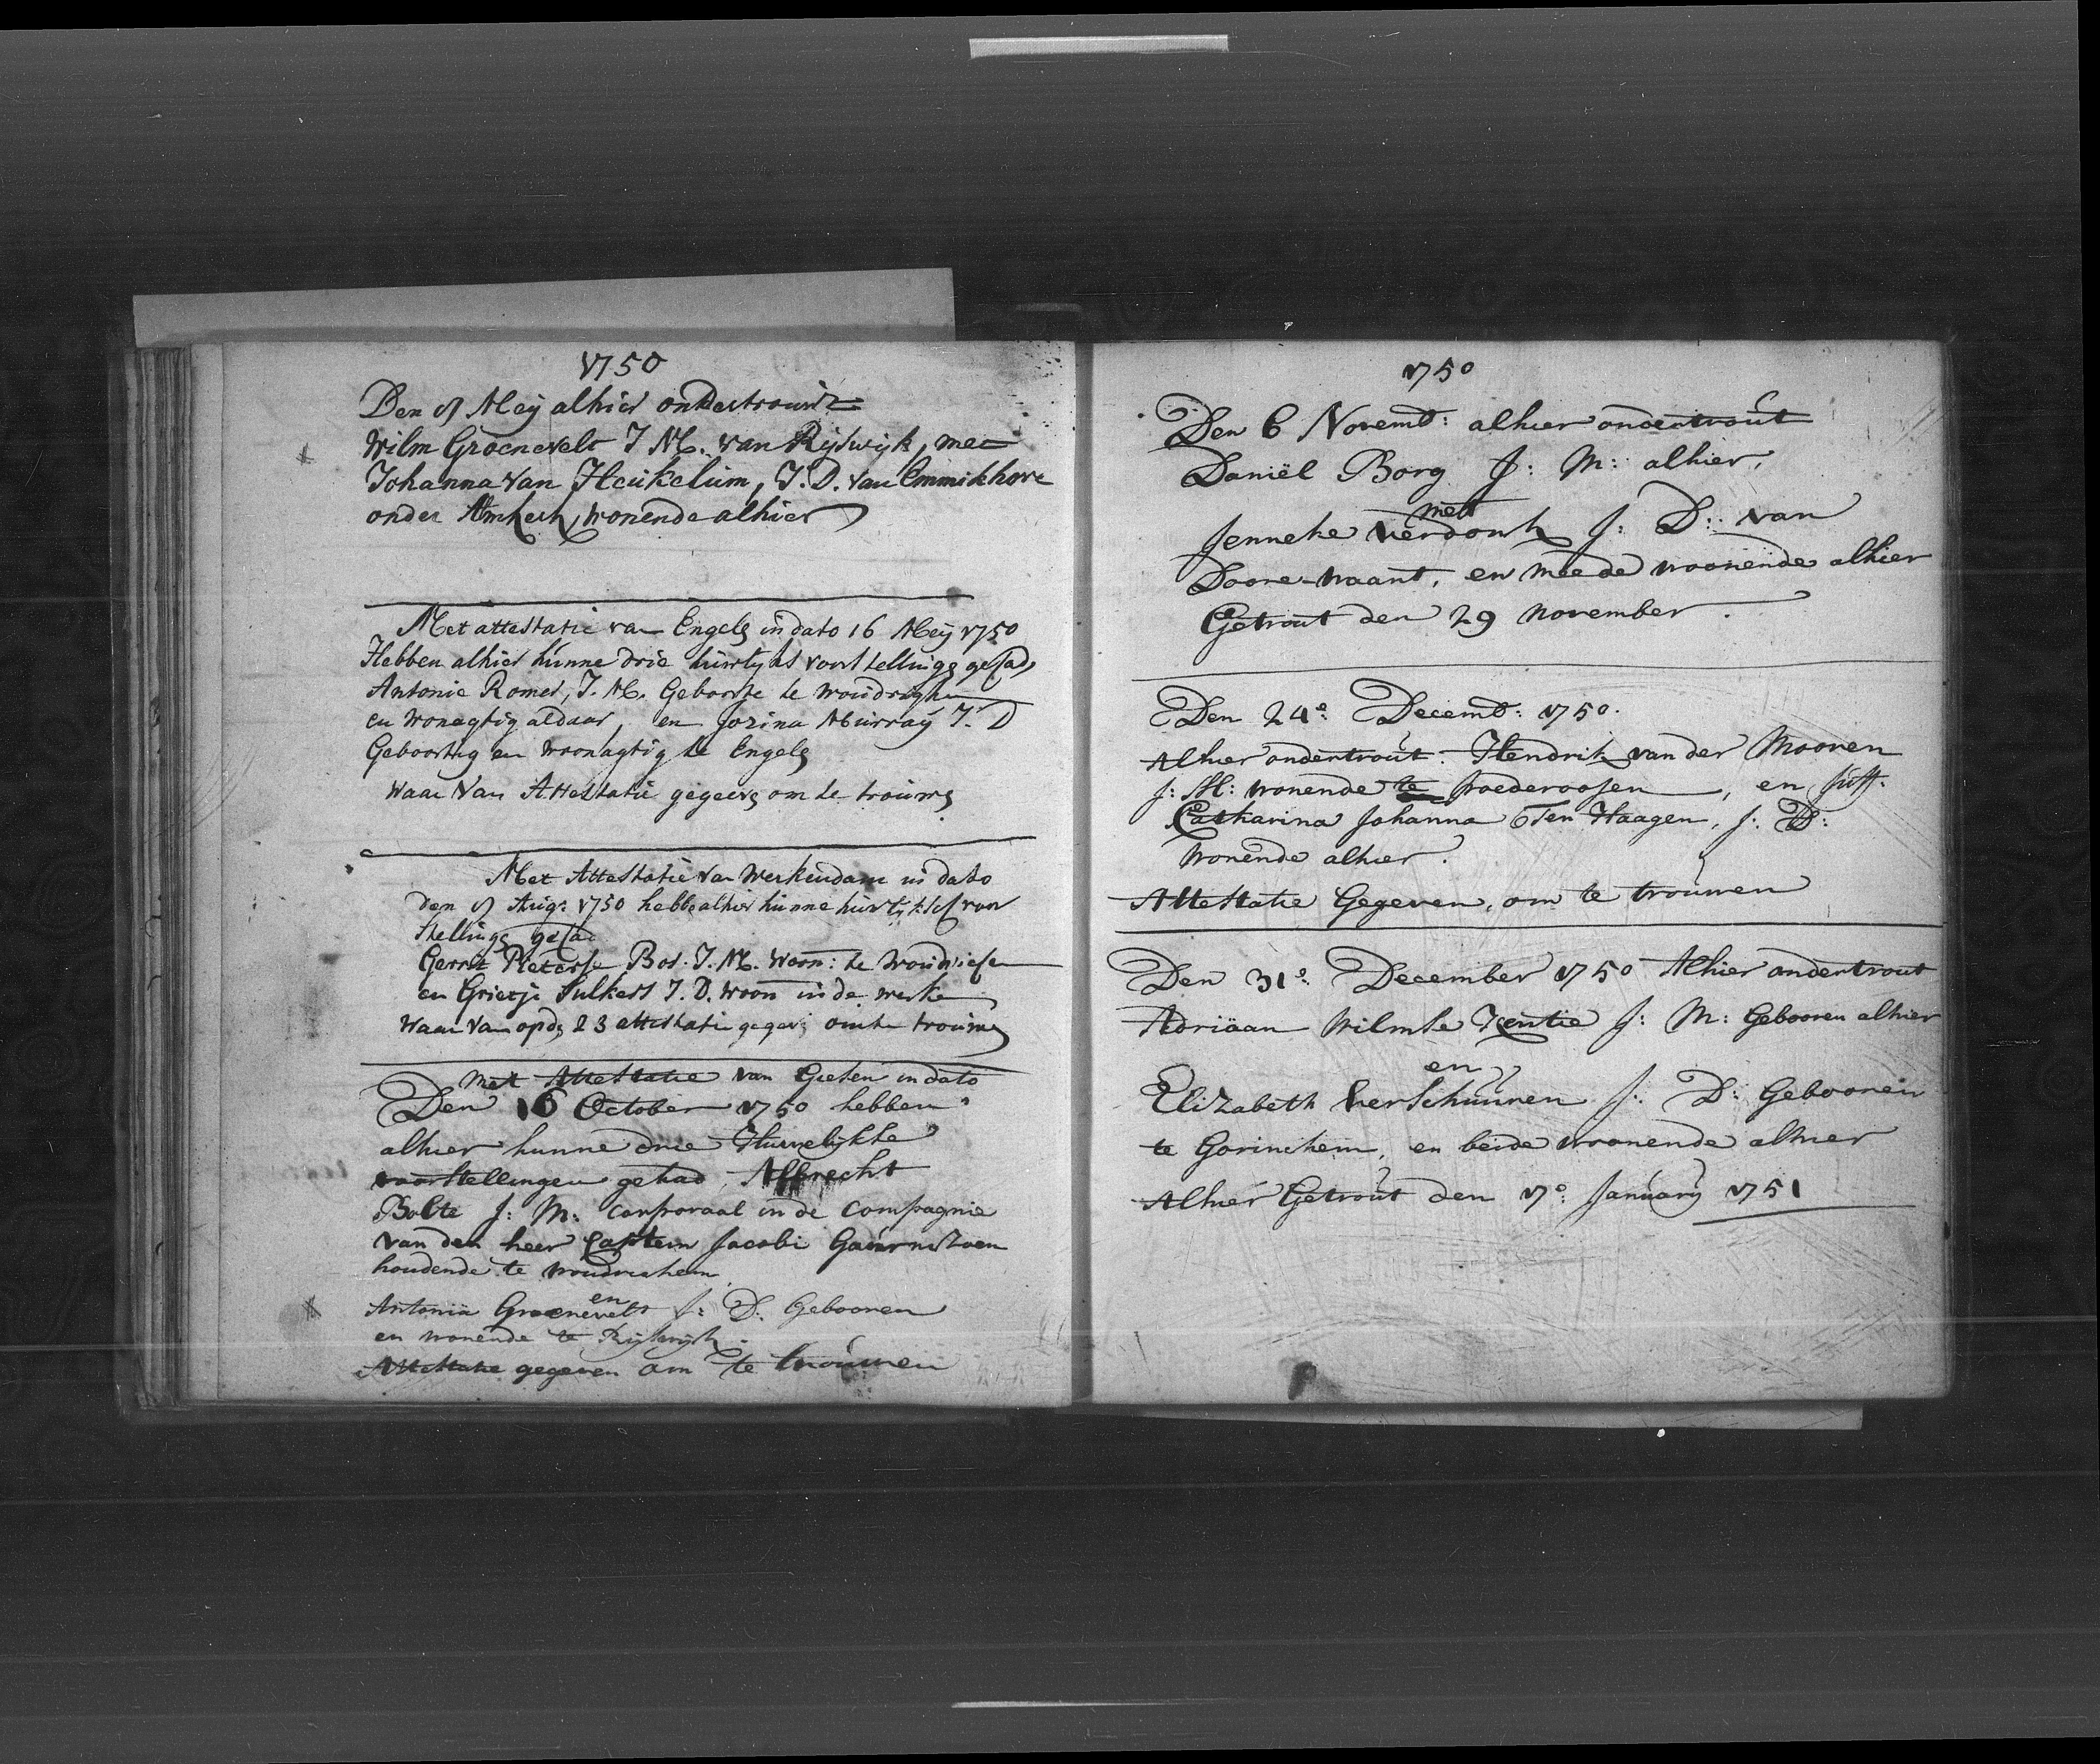 1750
Den 7 Meij alhier ondertrouwt
Wilm Groenevelt J M. van Rijswijk, met
Johanna van Heukelum, J. D. van Emmikhove
onder Almkerk, wonende alhier
Met attestatie van Engele in dato 16 Meij 1750
Hebben alhier hunne drie huwlyks voorstellinge gehad,
Antonie Romer, J. M. Geboorte te Woudrighem
en wonagtig aldaar, en Jozina Murraij J. D
Geboortig en woonagtig te Engele
waar van Attestatie gegeeve om te trouwe
Met Attestatie van Werkendam in dato
den 7 Aug: 1750 hebbe alhier hunne huwlykse voor
stellinge gehad
Gerrit Pieterse Bos: J. M. woon: te
en Grietje Sulkers J. D. woon in de werke
waar van op de 23 attestatie gegeve om te trouwe
met Attestatie van Giesen in dato
Den 16 October 1750 hebben
alhier hunne drie Huwelijkke
voorstellingen gehad, Albrecht
Bolte J: M: Corporaal in de Compagnie
van den heer Captein Jacobi Guarnizoen
houdende te woudrichem
en
Antonia Groenevelt J: D: Gebooren
en wonende te Rijswijk.
Attestatie gegeven om te trouwen
1750
Den 6 Novemb: alhier ondertrout
Daniël Borg J: M: alhier,
met
Jenneke Verdonk J: D: van
Doore-waart, en meede woonende alhier
Getrout den 29 November.
Den 24e: Decemb: 1750.
Alhier ondertrout. Hendrik van der Mooren
J: M: wonende te Poederoosen, en Juff.
Catharina Johanna Ten Haagen, J: D:
wonende alhier.
Attestatie Gegeven, om te trouwen
Den 31e: December 1750 Alhier ondertrout
Adriäan Wilmse Kentie J: M: Gebooren alhier
en
Elizabeth verschuuren J: D: Gebooren
te Gorinchem, en beide woonende alhier
Alhier Getrout den 17e: January 1751